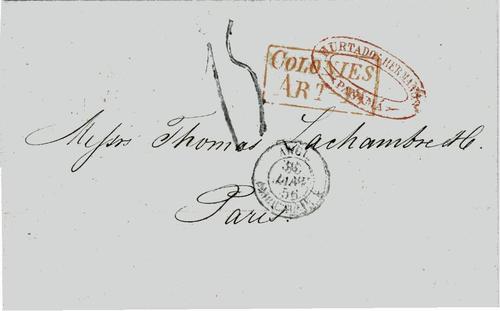 15
COLONIES
ART.
HURTADO HERMANOS
PANAMÁ
Messrs Thomas Lachambre & C.
ANGL.
56
Paris.